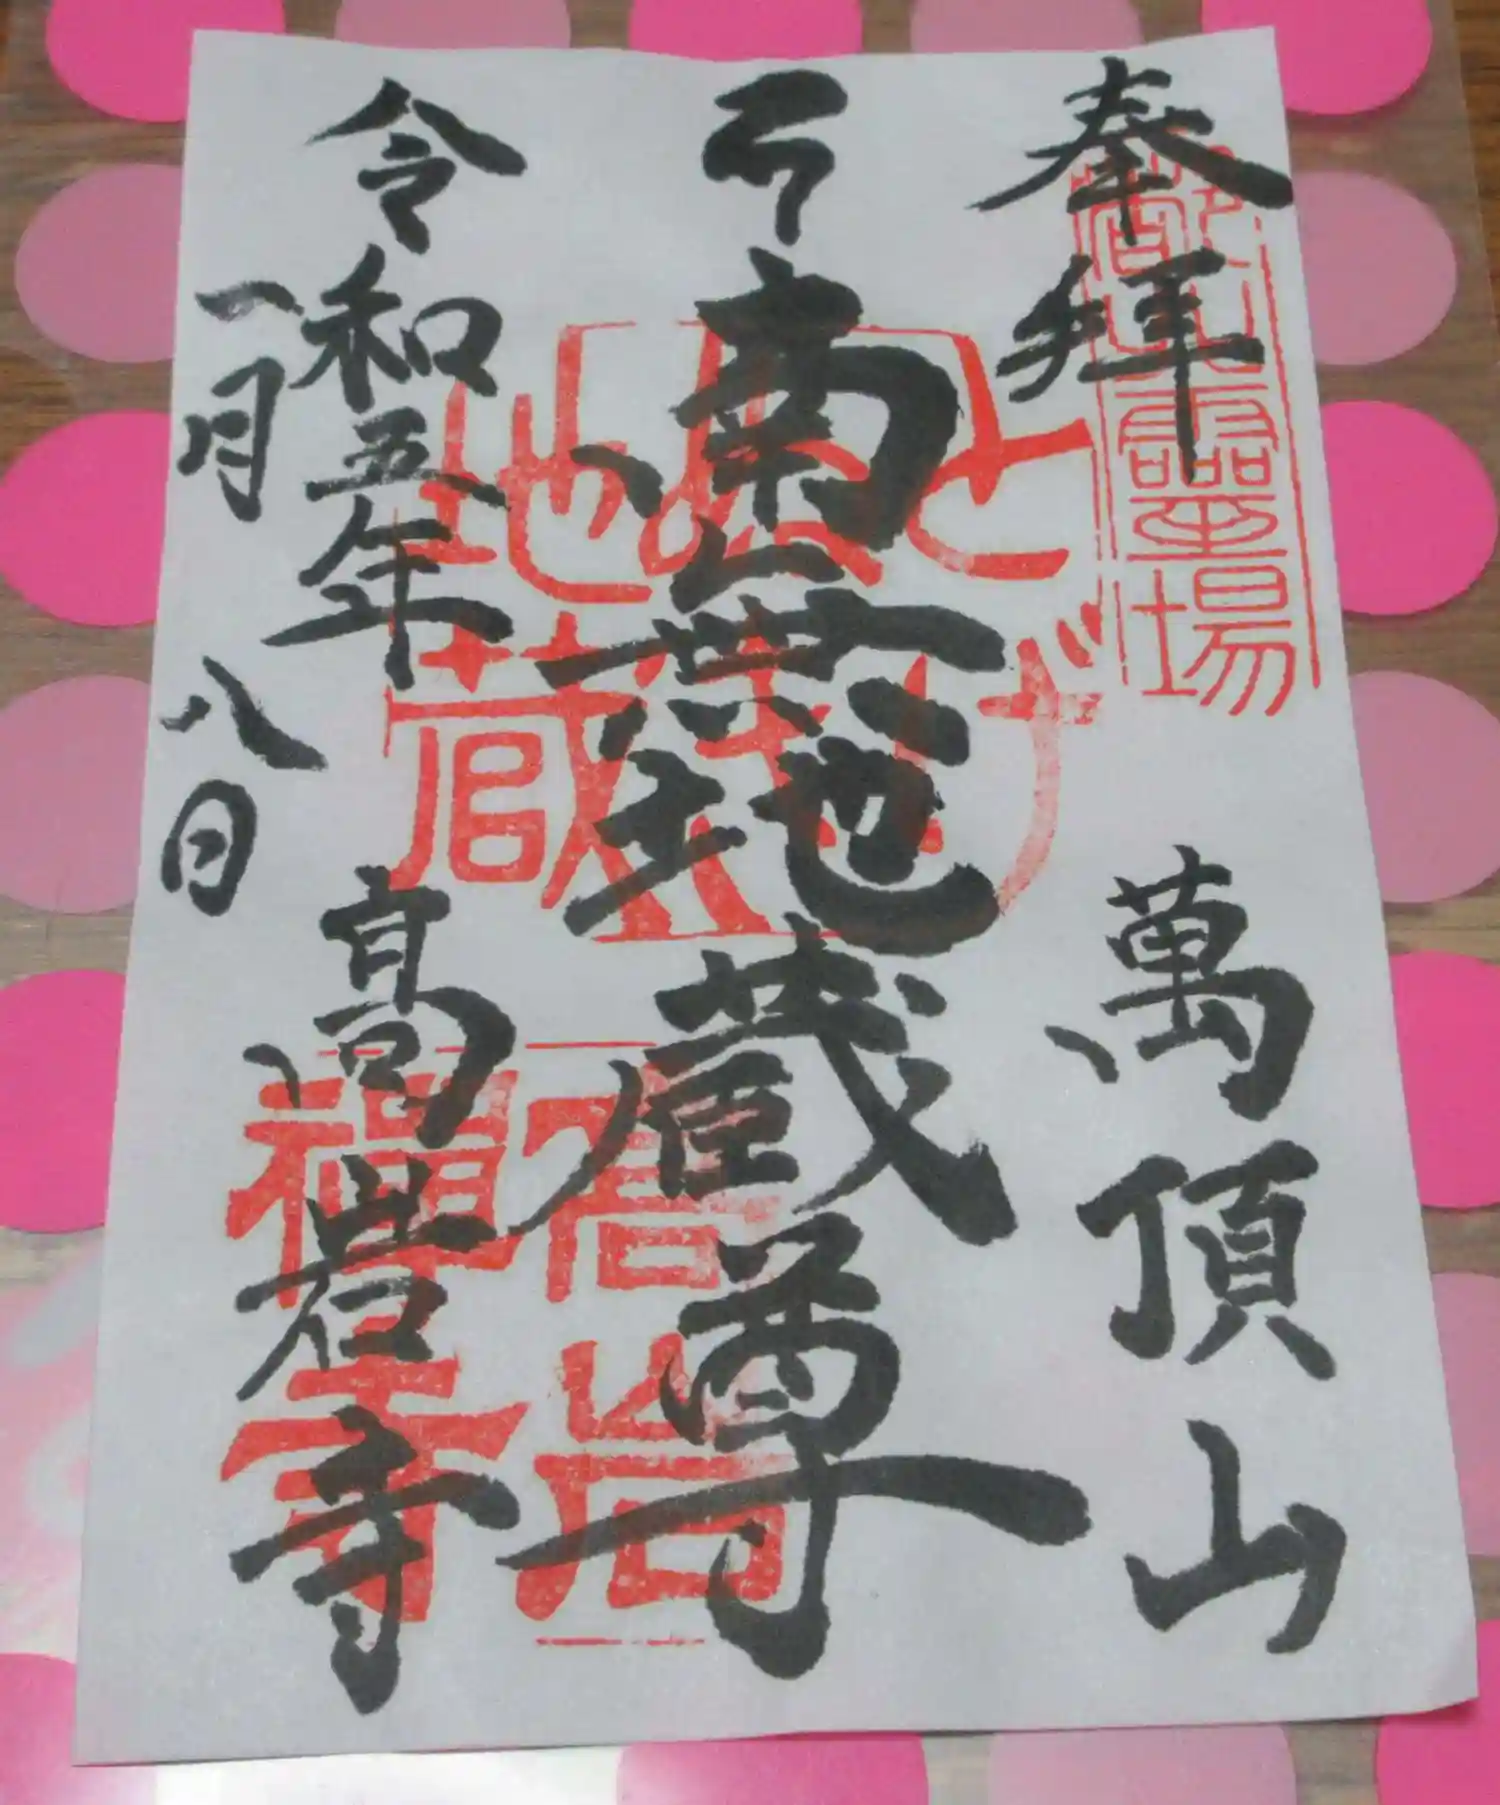 奉拝
萬頂山
南無地蔵尊
令和五年
一月八日
髙岩寺
靈場
とげぬき
地蔵
高岩
禅寺